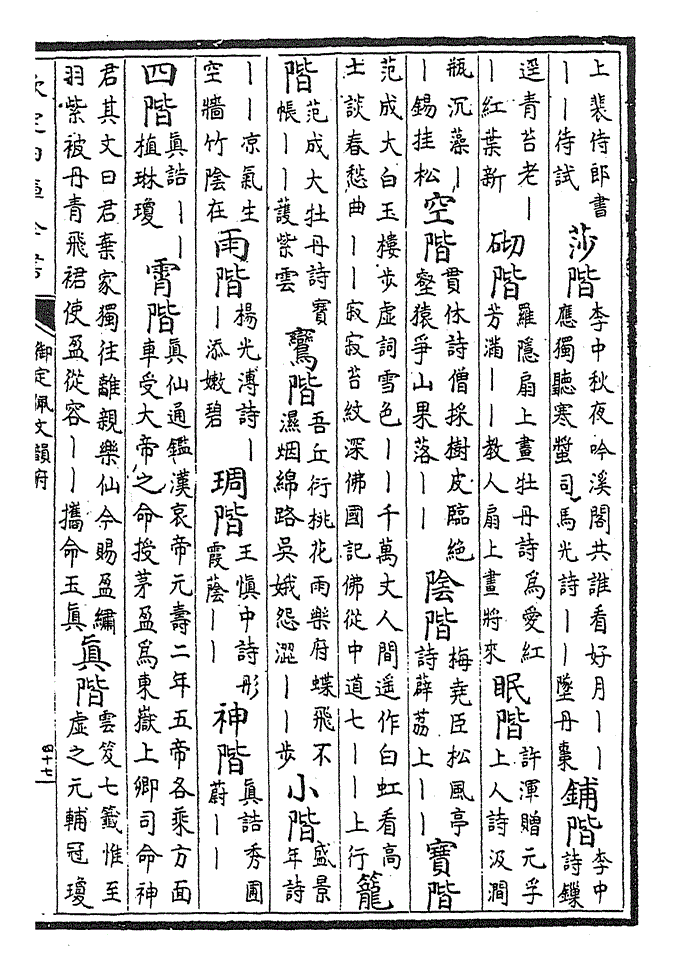 上裴侍郎書丨丨待試 莎階 李中秋夜吟溪閣共誰看好月丨丨應獨聽寒螿司馬光詩丨丨墜丹棗 鋪階 李中詩鏁
逕青苔老丨丨紅葉新 砌階 羅隱扇上畫牡丹詩為愛紅芳滿丨丨教人扇上畫將來 眠階 許渾贈元孚上人詩汲澗
瓶沉藻丨丨錫挂松 空階 貫休詩僧採樹皮臨絶壑猿爭山果落丨丨 陰階 梅堯臣松風亭詩薜荔上丨丨 寶階
范成大白玉樓步虛詞雪色丨丨千萬丈人間遥作白虹看高士談春愁曲丨丨寂寂苔紋深佛國記佛從中道七丨丨上行 籠
階 范成大牡丹詩賽帳丨丨䕶紫雲 鸞階 吾丘衍桃花雨樂府蝶飛不濕烟綿路吳娥怨澀丨丨步 小階 盛景年詩
丨丨凉氣生空牆竹陰在 雨階 楊光溥詩丨丨添嫩碧 琱階 王愼中詩彤霞蔭丨丨 神階 眞誥秀圃蔚丨丨
四階 眞誥丨丨植琳瓊 霄階 眞仙通鑑漢哀帝元壽二年五帝各乘方面車受大帝之命授茅盈為東嶽上卿司命神
君其文曰君棄家獨往離親樂仙今賜盈繡羽紫被丹青飛裙使盈從容丨丨攜命玉眞 眞階 雲笈七籖惟至虛之元輔冠瓊
欽定四庫全書
御定佩文韻府
四十七